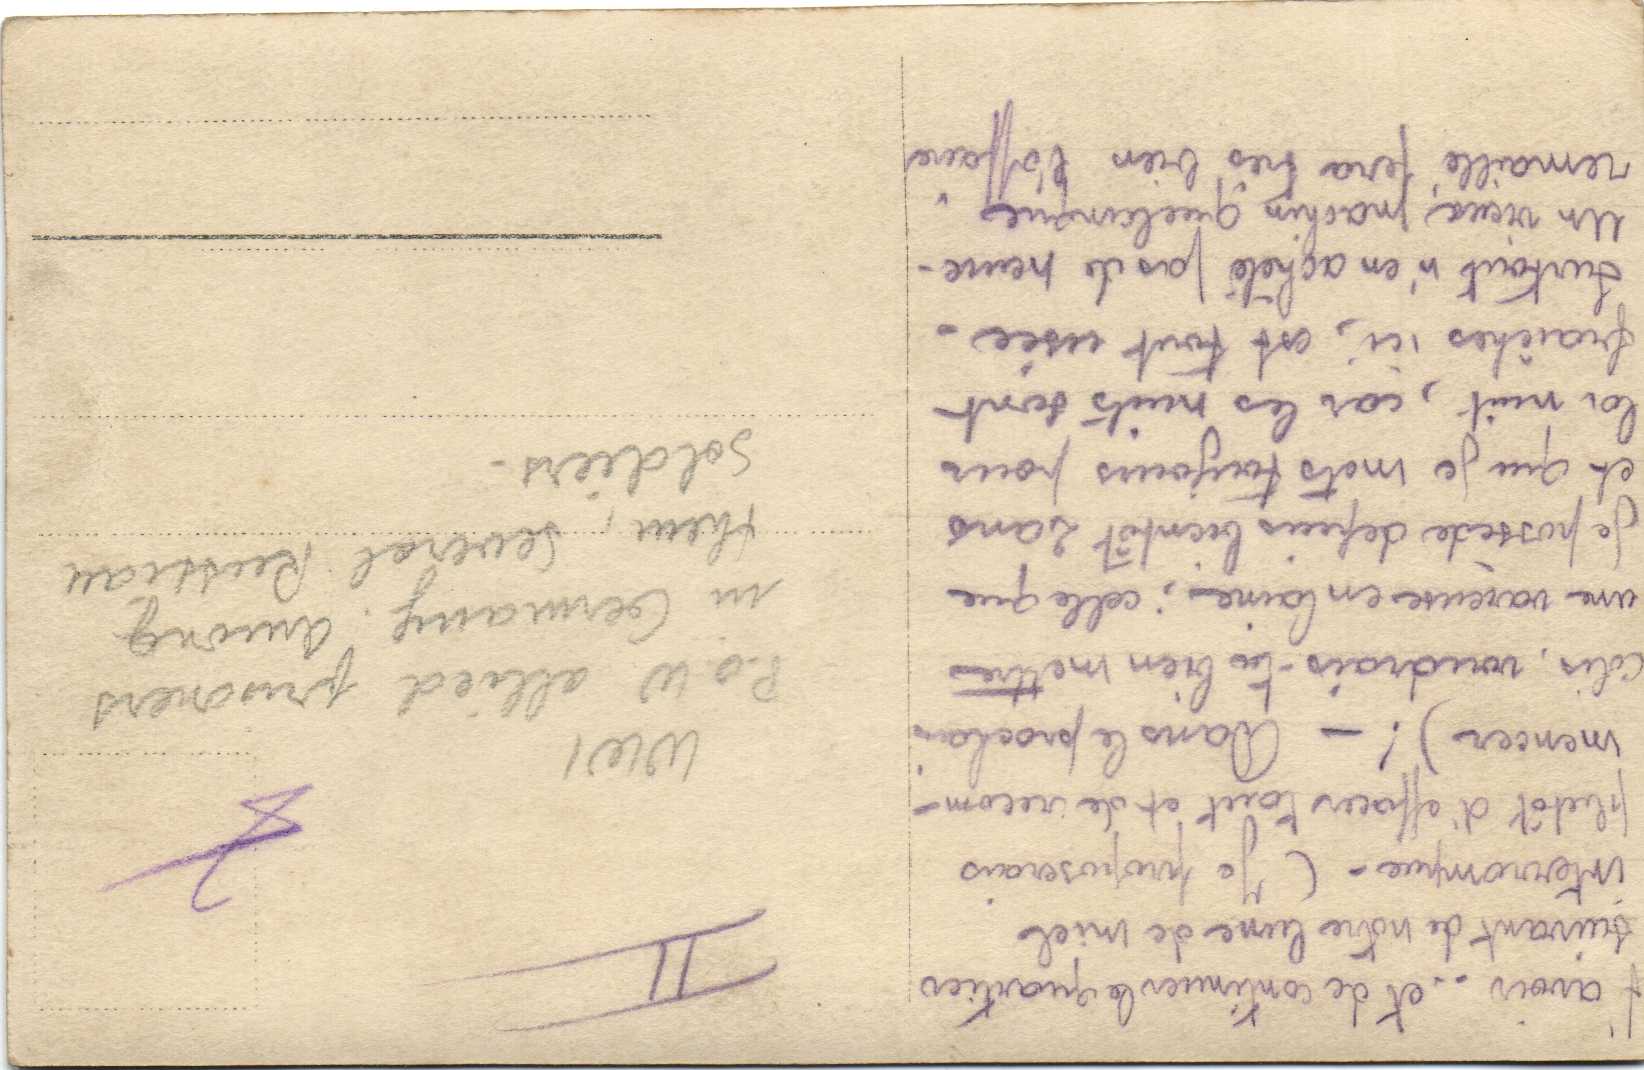 t'avoir - et de continuer le quartier
suivant de notre lune de miel
interrompue - (Je proposerais
plutôt d'effacer tout et de recom-
mencer) ! — Dans le prochain
colis, voudrais-tu bien mettre
une vareuse en laine ; celle que
je possède depuis bientôt 2 ans
et que je mets toujours pour
la nuit, car les nuits sont
fraîches ici, est tout usée -
Surtout n'en achète pas de neuve -
Un vieux machin quelconque,
remaillé, fera très bien l'affaire
II
WW1
P.O.W allied prisoners
in Germany. Among
them, several Russian
Soldiers -